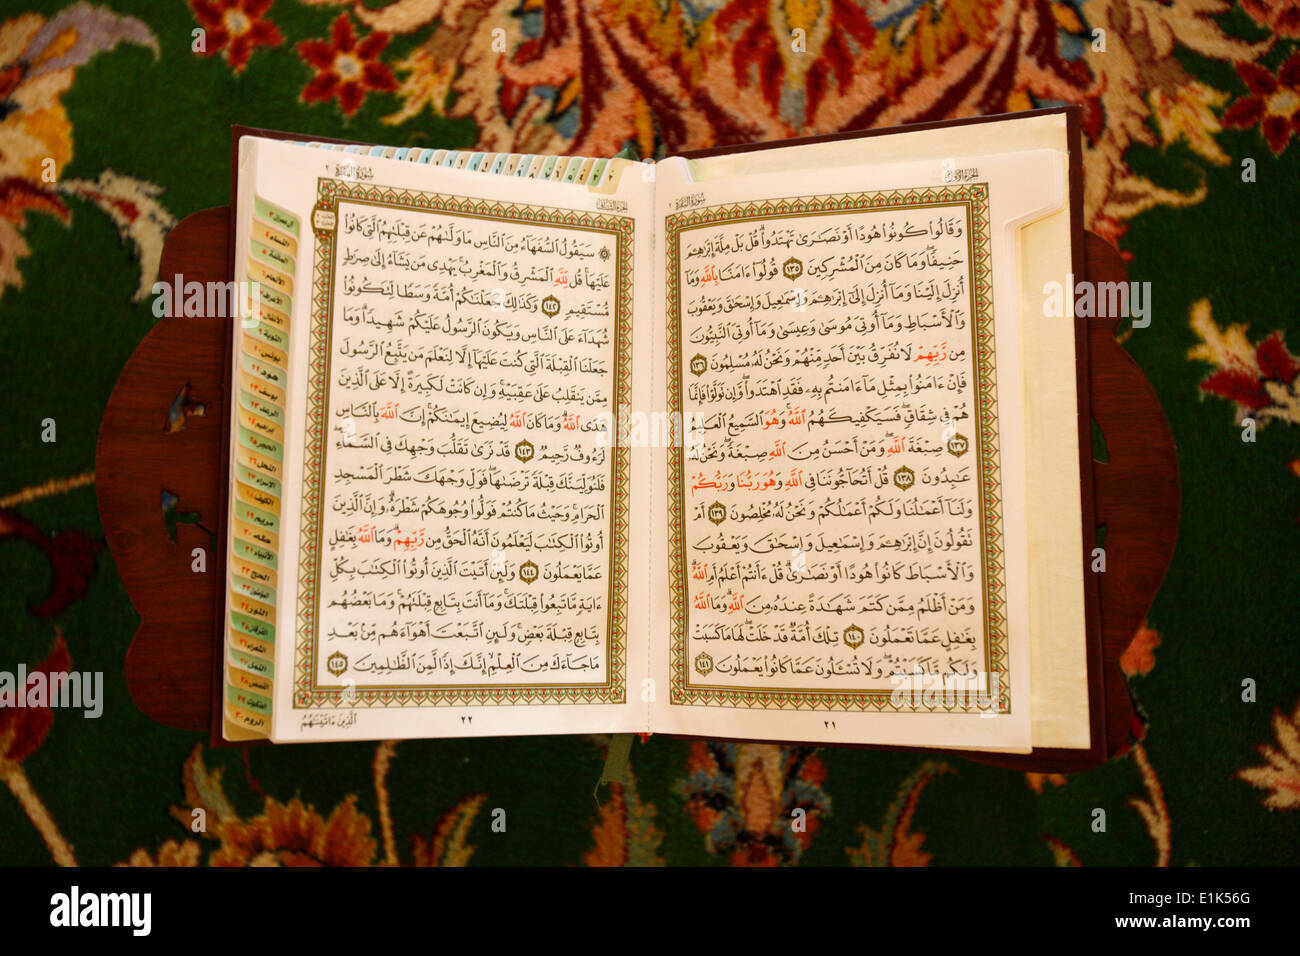 سُورَةُ البَقَرَةِ ٢
الجُزءُ الأوَّلُ
وَقَالُوا۟ كُونُوا۟ هُودًا أَوْ نَصَـٰرَىٰ تَهْتَدُوا۟ ۗ قُلْ بَلْ مِلَّةَ إِبْرَٰهِـۧمَ
حَنِيفًا ۖ وَمَا كَانَ مِنَ ٱلْمُشْرِكِينَ ١٣٥ قُولُوٓا۟ ءَامَنَّا بِٱللَّهِ وَمَآ
أُنزِلَ إِلَيْنَا وَمَآ أُنزِلَ إِلَىٰٓ إِبْرَٰهِـۧمَ وَإِسْمَـٰعِيلَ وَإِسْحَـٰقَ وَيَعْقُوبَ
وَٱلْأَسْبَاطِ وَمَآ أُوتِىَ مُوسَىٰ وَعِيسَىٰ وَمَآ أُوتِىَ ٱلنَّبِيُّونَ
مِن رَّبِّهِمْ لَا نُفَرِّقُ بَيْنَ أَحَدٍ مِّنْهُمْ وَنَحْنُ لَهُۥ مُسْلِمُونَ ١٣٦
فَإِنْ ءَامَنُوا۟ بِمِثْلِ مَآ ءَامَنتُم بِهِۦ فَقَدِ ٱهْتَدَوا۟ ۖ وَّإِن تَوَلَّوْا۟ فَإِنَّمَا
هُمْ فِى شِقَاقٍ ۖ فَسَيَكْفِيكَهُمُ ٱللَّهُ ۚ وَهُوَ ٱلسَّمِيعُ ٱلْعَلِيمُ
١٣٧ صِبْغَةَ ٱللَّهِ ۖ وَمَنْ أَحْسَنُ مِنَ ٱللَّهِ صِبْغَةً ۖ وَنَحْنُ لَهُۥ
عَـٰبِدُونَ ١٣٨ قُلْ أَتُحَآجُّونَنَا فِى ٱللَّهِ وَهُوَ رَبُّنَا وَرَبُّكُمْ
وَلَنَآ أَعْمَـٰلُنَا وَلَكُمْ أَعْمَـٰلُكُمْ وَنَحْنُ لَهُۥ مُخْلِصُونَ ١٣٩ أَمْ
تَقُولُونَ إِنَّ إِبْرَٰهِـۧمَ وَإِسْمَـٰعِيلَ وَإِسْحَـٰقَ وَيَعْقُوبَ
وَٱلْأَسْبَاطَ كَانُوا۟ هُودًا أَوْ نَصَـٰرَىٰ ۗ قُلْ ءَأَنتُمْ أَعْلَمُ أَمِ ٱللَّهُ ۗ
وَمَنْ أَظْلَمُ مِمَّن كَتَمَ شَهَـٰدَةً عِندَهُۥ مِنَ ٱللَّهِ ۗ وَمَا ٱللَّهُ
بِغَـٰفِلٍ عَمَّا تَعْمَلُونَ ١٤٠ تِلْكَ أُمَّةٌ قَدْ خَلَتْ ۖ لَهَا مَا كَسَبَتْ
وَلَكُم مَّا كَسَبْتُمْ ۖ وَلَا تُسْـَٔلُونَ عَمَّا كَانُوا۟ يَعْمَلُونَ ١٤١
٢١
سُورَةُ البَقَرَةِ ٢
الجُزءُ الثَّانِي
۞ سَيَقُولُ ٱلسُّفَهَآءُ مِنَ ٱلنَّاسِ مَا وَلَّىٰهُمْ عَن قِبْلَتِهِمُ ٱلَّتِى كَانُوا۟
عَلَيْهَا ۚ قُل لِّلَّهِ ٱلْمَشْرِقُ وَٱلْمَغْرِبُ ۚ يَهْدِى مَن يَشَآءُ إِلَىٰ صِرَٰطٍ
مُّسْتَقِيمٍ ١٤٢ وَكَذَٰلِكَ جَعَلْنَـٰكُمْ أُمَّةً وَسَطًا لِّتَكُونُوا۟
شُهَدَآءَ عَلَى ٱلنَّاسِ وَيَكُونَ ٱلرَّسُولُ عَلَيْكُمْ شَهِيدًا ۗ وَمَا
جَعَلْنَا ٱلْقِبْلَةَ ٱلَّتِى كُنتَ عَلَيْهَآ إِلَّا لِنَعْلَمَ مَن يَتَّبِعُ ٱلرَّسُولَ
مِمَّن يَنقَلِبُ عَلَىٰ عَقِبَيْهِ ۚ وَإِن كَانَتْ لَكَبِيرَةً إِلَّا عَلَى ٱلَّذِينَ
هَدَى ٱللَّهُ ۗ وَمَا كَانَ ٱللَّهُ لِيُضِيعَ إِيمَـٰنَكُمْ ۚ إِنَّ ٱللَّهَ بِٱلنَّاسِ
لَرَءُوفٌ رَّحِيمٌ ١٤٣ قَدْ نَرَىٰ تَقَلُّبَ وَجْهِكَ فِى ٱلسَّمَآءِ ۖ
فَلَنُوَلِّيَنَّكَ قِبْلَةً تَرْضَىٰهَا ۚ فَوَلِّ وَجْهَكَ شَطْرَ ٱلْمَسْجِدِ
ٱلْحَرَامِ ۚ وَحَيْثُ مَا كُنتُمْ فَوَلُّوا۟ وُجُوهَكُمْ شَطْرَهُۥ ۗ وَإِنَّ ٱلَّذِينَ
أُوتُوا۟ ٱلْكِتَـٰبَ لَيَعْلَمُونَ أَنَّهُ ٱلْحَقُّ مِن رَّبِّهِمْ ۗ وَمَا ٱللَّهُ بِغَـٰفِلٍ
عَمَّا يَعْمَلُونَ ١٤٤ وَلَئِنْ أَتَيْتَ ٱلَّذِينَ أُوتُوا۟ ٱلْكِتَـٰبَ بِكُلِّ
ءَايَةٍ مَّا تَبِعُوا۟ قِبْلَتَكَ ۚ وَمَآ أَنتَ بِتَابِعٍ قِبْلَتَهُمْ ۚ وَمَا بَعْضُهُم
بِتَابِعٍ قِبْلَةَ بَعْضٍ ۚ وَلَئِنِ ٱتَّبَعْتَ أَهْوَآءَهُم مِّنۢ بَعْدِ
مَا جَآءَكَ مِنَ ٱلْعِلْمِ ۙ إِنَّكَ إِذًا لَّمِنَ ٱلظَّـٰلِمِينَ ١٤٥
٢٢
ٱلَّذِينَ ءَاتَيْنَـٰهُمُ
آل عمران ٣
النساء ٤
المائدة ٥
الأنعام ٦
الأعراف ٧
الأنفال ٨
التوبة ٩
يونس ١٠
هود ١١
يوسف ١٢
الرعد ١٣
إبراهيم ١٤
الحجر ١٥
النحل ١٦
الإسراء ١٧
الكهف ١٨
مريم ١٩
طه ٢٠
الأنبياء ٢١
الحج ٢٢
المؤمنون ٢٣
النور ٢٤
الفرقان ٢٥
الشعراء ٢٦
النمل ٢٧
القصص ٢٨
العنكبوت ٢٩
الروم ٣٠
alamy
www.alamy.com - E1K56G